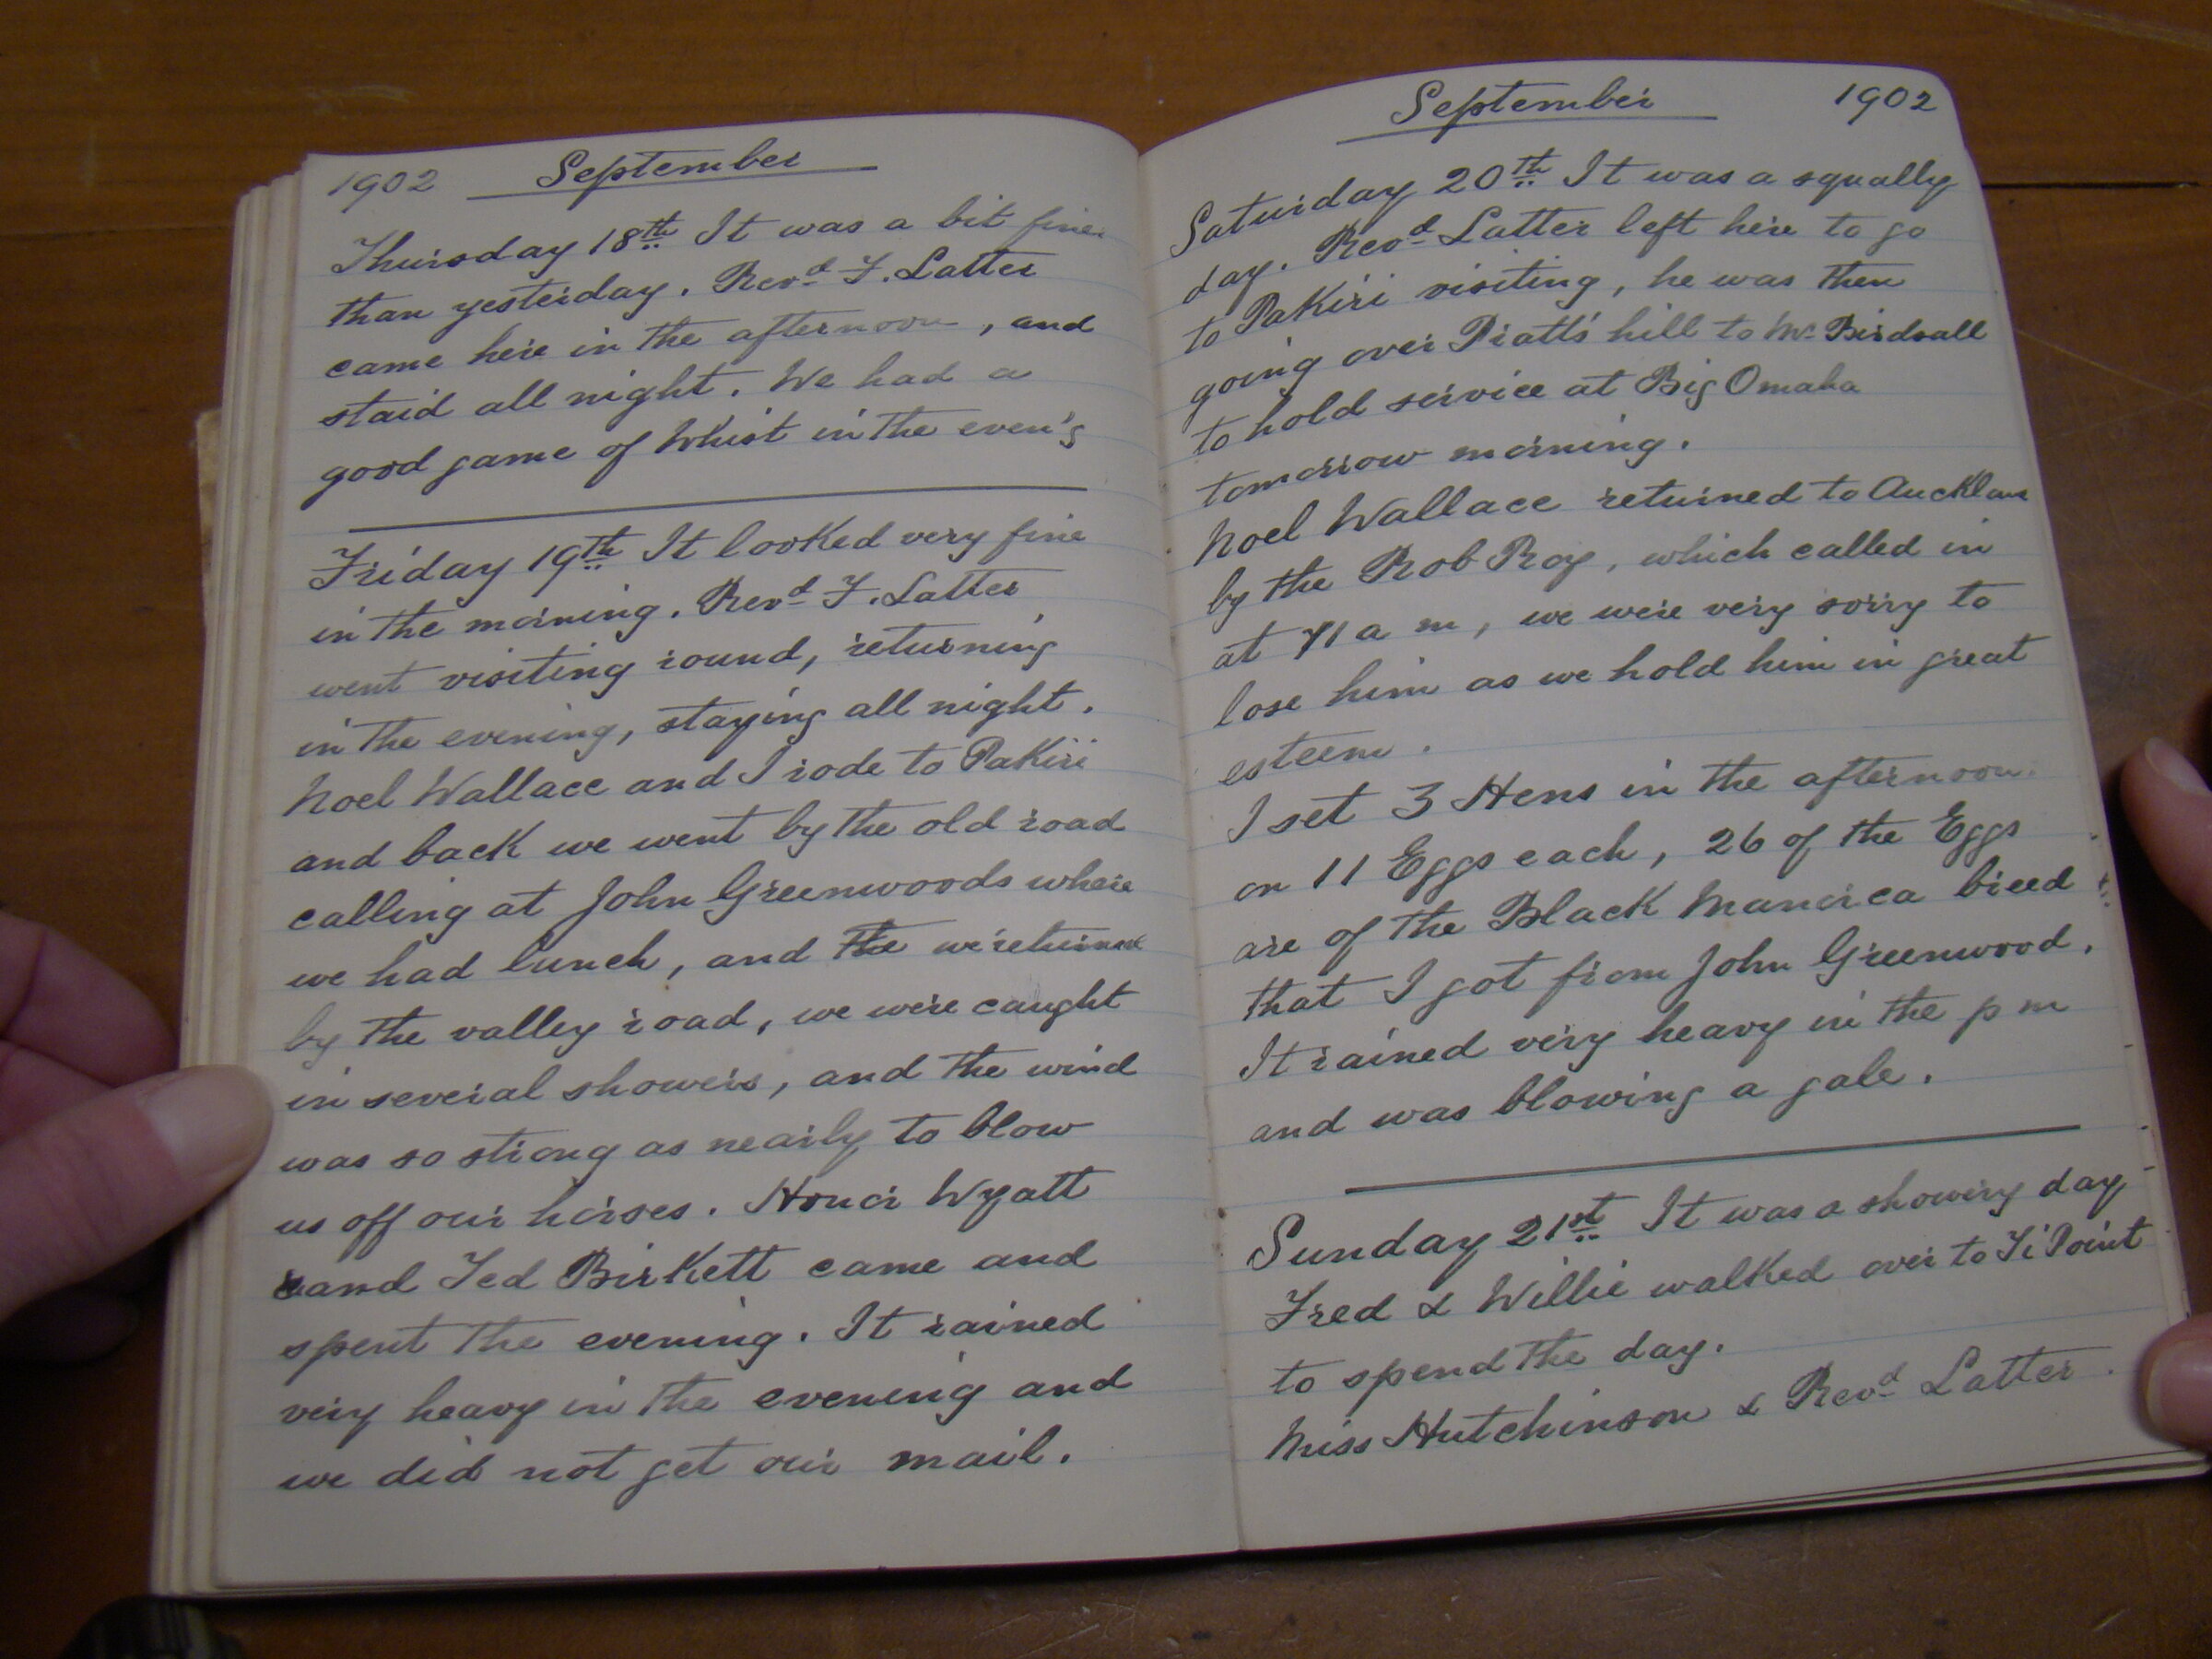 1902 September
Thursday 18th It was a bit finer
than yesterday. Revd F. Latter
came here in the afternoon, and
staid all night. We had a
good game of Whist in the even'g
Friday 19th It looked very fine
in the morning. Revd F. Latter
went visiting round, returning
in the evening, staying all night.
Noel Wallace and I rode to Pakiri
and back we went by the old road
calling at John Greenwoods where
we had lunch, and the we returned
by the valley road, we were caught
in several showers, and the wind
was so strong as nearly to blow
us off our horses. Honor Wyatt
and Ted Birkett came and
spent the evening. It rained
very heavy in the evening and
we did not get our mail.
September 1902
Saturday 20th It was a squally
day. Revd Latter left here to go
to Pakiri visiting, he was then
going over Piatts hill to Mr Birdsall
to hold service at Big Omaha
tomorrow morning.
Noel Wallace returned to Auckland
by the Rob Roy, which called in
at 11 a m, we were very sorry to
lose him as we hold him in great
esteem.
I set 3 Hens in the afternoon
on 11 Eggs each, 26 of the Eggs
are of the Black Manorca breed
that I got from John Greenwood.
It rained very heavy in the p m
and was blowing a gale.
Sunday 21st It was a showery day
Fred & Willie walked over to Ti Point
to spend the day.
Miss Hutchinson & Revd Latter.